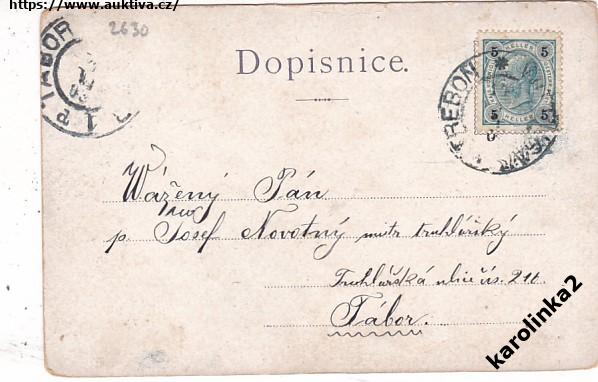 https://www.auktiva.cz/
2630
TÁBOR
Dopisnice.
5 HELLER 5
5 HELLER 5
Vážený Pán
p. Josef Novotný mistr truhlářský
Truhlářská ulice čís. 216.
Tábor.
karolinka2